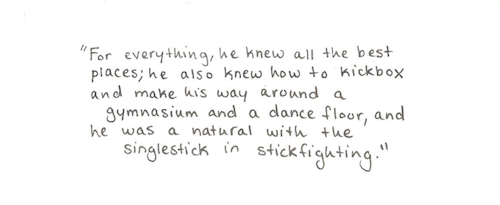 "For everything, he knew all the best
places; he also knew how to kickbox
and make his way around a
gymnasium and a dance floor, and
he was a natural with the
singlestick in stickfighting."